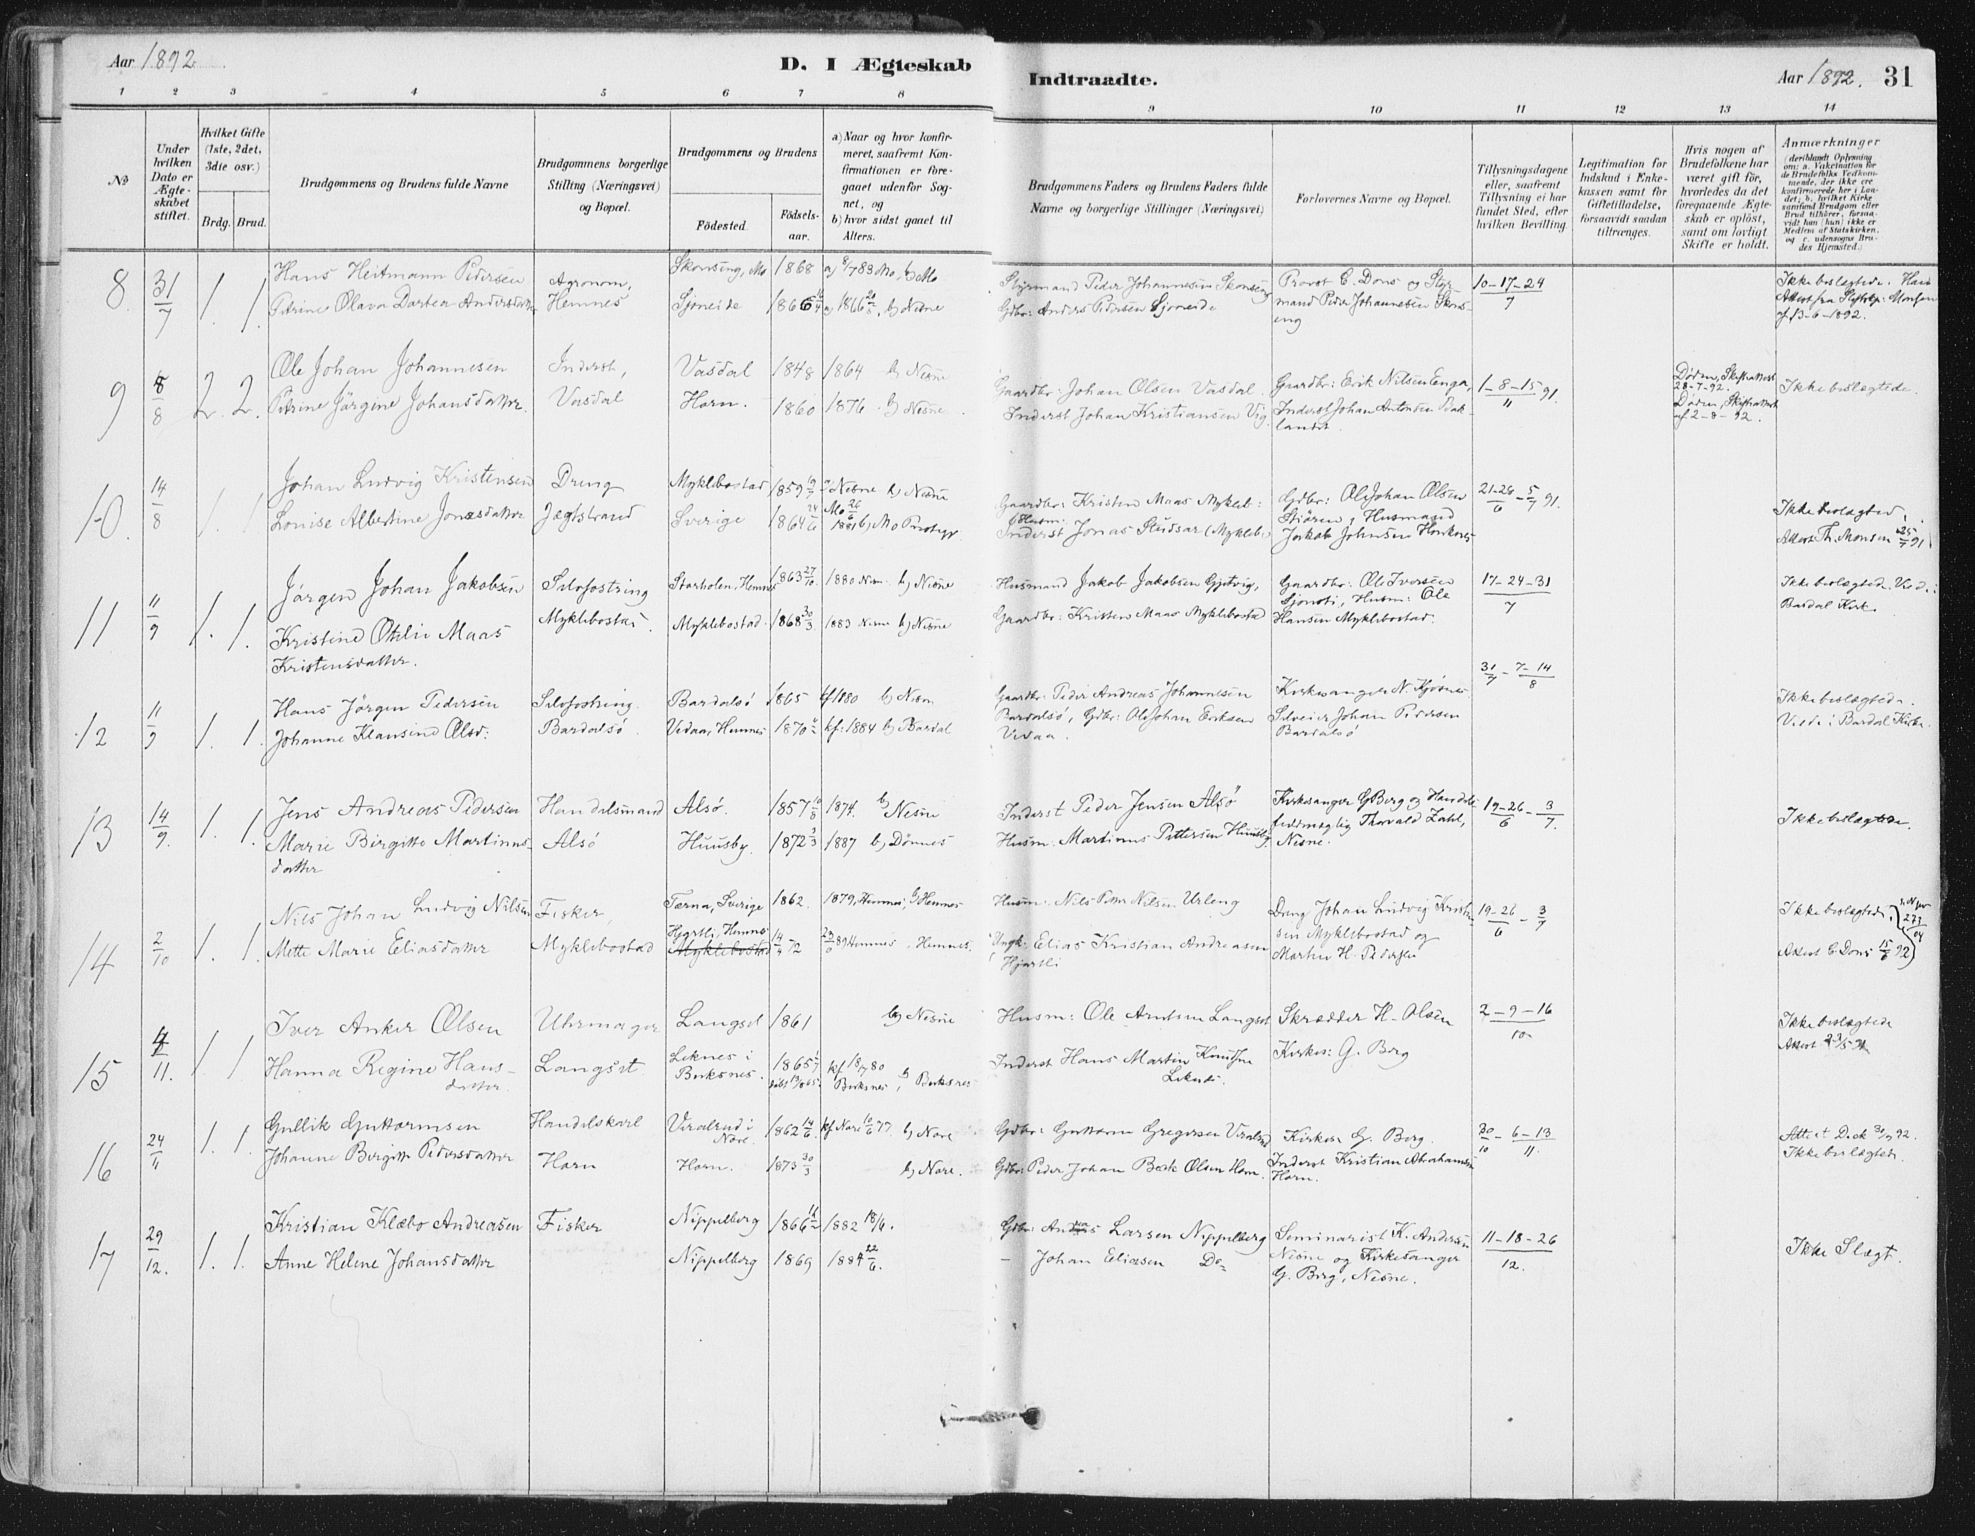 Aar 1892
D. I Ægteskab
Indtraadte.
Aar 1892. 31
1 2 3 4 5 6 7 8 9 10 11 12 13 14
No
Under hvilken Dato er Ægteskabet stiftet.
Hvilket Gifte (1ste, 2det, 3die osv.)
Brdg. Brud.
Brudgommens og Brudens fulde Navne
Brudgommens borgerlige Stilling (Næringsvei) og Bopæl.
Brudgommens og Brudens
Fødested.
Fødselsaar.
a) Naar og hvor konfirmeret, saafremt Konfirmationen er foregaaet udenfor Sognet, og
b) hvor sidst gaaet til Alters.
Brudgommens Faders og Brudens Faders fulde Navne og borgerlige Stillinger (Næringsvei)
Forlovernes Navne og Bopæl.
Tillysningsdagene eller, saafremt Tillysning ei har fundet Sted, efter hvilken Bevilling.
Legitimation for Indskud i Enkekassen samt for Giftetilladelse, forsaavidt saadan tiltrænges.
Hvis nogen af Brudefolkene har været gift før, hvorledes da det foregaaende Ægteskab er opløst, samt om lovligt Skifte er holdt.
Anmærkninger
(deriblandt Oplysning om: a. Vakcination for de Brudefolks Vedkommende, der ikke ere konfirmerede her i Landet; b. hvilket Kirkesamfund Brudgom eller Brud tilhører, forsaavidt han (hun) ikke er Medlem af Statskirken, og c. udensogns Brudes Hjemsted.)
8 31/7 1. 1. Hans Heitmann Pedersen Agronom, Skonseng, Mo 1868 a) 8/7 83 Mo, b) Mo Styrmand Peder Johannesen Skonseng Provst C. Dons og Styrmand Peder Johannesen Skonseng 10-17-24/7 Ikke beslægtede.
Petrine Olava Dortea Andersdatter Hemnes Sjoneide 1866 b) Nesne Gdbr: Anders Pedersen Sjoneide 13-6-1892.
9 8/8 2. 2. Ole Johan Johannesen Inderst, Vasdal 1848 1864 b) Nesne Gaardbr: Johan Olsen Vasdal. Gaardbr: Erik Nilsen Enga, 1-8-15/11 91. Døden, Skifteattest 28-7-92. Ikke beslægtede.
Petrine Jørgine Johansdatter Vasdal Horn. 1860 1876 b) Nesne Inderst Johan Kristiansen Vig Inderst Johan Antonsen Baklandet. Døden, Skifteattest af 2-8-92.
10. 14/8 1. 1. Johan Ludvig Kristensen Dreng Myklebostad 1859 Nesne b) Nesne Gaardbr: Kristen Maas Mykleb: Gdbr: Ole Johan Olsen 21-26/6-5/7 91.
Louise Albertine Jonasdatter Jægtstrand Sverige 1864 24/6 Mo 26/6 1881 b) Mo Inderst Jonas Sludsar (Mykleb.) Husmand Jakob Johnsen Ikke beslægted. Attest Th. Monsen 25/7 91
11 11/9 1. 1. Jørgen Johan Jakobsen Selvfostring Storholen, Hemnes 1863 27/10 1880 Nesn. b) Nesne Husmand Jakob Jakobsen Gjetvig, Gaardbr: Ole Iversen 17-24-31/7 Ikke beslægtede. Viede i Bardal Kirk.
Kristine Otelie Maas Kristensdatter. Myklebostad. Myklebostad. 1868 30/3 1883 Nesne b) Nesne Gaardbr: Kristen Maas Myklebostad Husm: Ole Hansen Myklebostad.
12 11/9 1. 1. Hans Jørgen Pedersen Selvfostring. Bardalsø 1865 kf 1880 b) Nesn Gaardbr: Peder Andreas Johannesen Bardalsø, Kirkesanger N. Kjøsnes 31/7-7-14/8 Ikke beslægtede.
Johanne Klausine Olsd: Bardalsø Vedaa, Hemnes 1870 kf: 1884 b) Bardal Gdbr: Ole Johan Eriksen Vedaa. Selveier Johan Pedersen Bardalsø Viede i Bardal Kirke.
13 14/9. 1. 1. Jens Andreas Pedersen Handelsmand Alsø. 1857 10/8 1874. b) Nesne Inderst Peder Jensen Alsø Kirkesanger G. Berg og Handelsfuldmægtig Thorvald Zahl, Nesne. 19-26/6-3/7. Ikke beslægtede.
Marie Birgitte Martinusdatter Alsø Huusby. 1872 3/3 1887 b) Dønnes Husm. Martinus Pettersen Huusby
14 2/10 1. 1. Nils Johan Ludvig Nilsen Fisker, Tærna, Sverige 1862. 1879, Hemnes, b) Hemnes Husm. Nils Peter Nilsen Urleng Dreng Johan Ludvig Kristensen Myklebostad og 19-26/6-3/7 Ikke beslægtede.
Mette Marie Eliasdatter Myklebostad Hjartli, Hemnes Myklebostad 14/4 72 23/6 89 Hemnes, Hemnes. Ungk: Elias Kristian Andreasen Hjartli Martin H. Pedersen Attest C. Dons 15/6 92
15 4/11. 1. 1. Iver Anker Olsen Uhrmager Langset 1861 b) Nesne Husm: Ole Arntsen Langset Skrædder H. Olsen 2-9-16/10. Ikke beslægtede
Hanna Regine Hansdatter. Langset. Leknes i Birksnes. 1865 kf 18/7 80 Birksnes b) Birksnes Inderst Hans Martin Knutsen Leknes. Kirkes: G. Berg
16 24/11 1. 1. Gullik Guttormsen Handelskarl Viralrud i Nore. 1862 14/6. kf Nore 10/6 77 b) Nore Gdbr: Guttorm Gregersen Viralrud Kirkes: G. Berg. 30/10-6-13/11. Attest Deck 30/9 92. Ikke beslægtede.
Johanne Birgitte Pedersdatter Horn Horn. 1873 30/3 b) Nore. Gdbr: Peder Johan Beck Olsen Horn. Inderst Kristian Abrahamsen Horn.
17 29/12. 1. 1. Kristian Klæbo Andreasen Fisker Nippelberg 1866 1882 18/6. Gdbr: Andreas Larsen Nippelberg Seminarist K. Andersen Nesne og Kirkesanger G. Berg, Nesne. 11-18-26/12. Ikke Slægt.
Anne Helene Johansdatter Nippelberg 1869 1884 22/6. - Johan Eliasen Do-